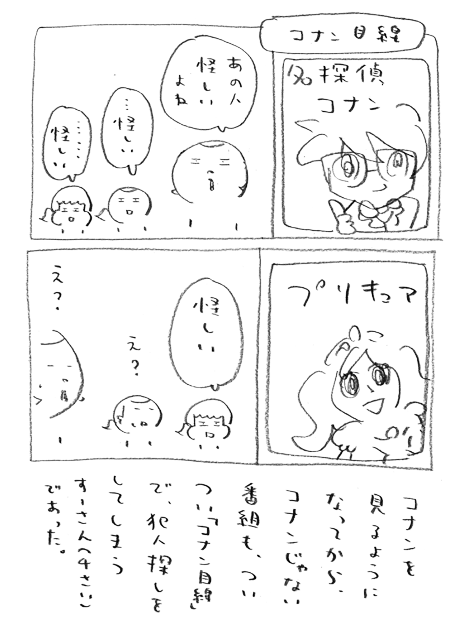 コナン目線
名探偵
コナン
あの人
怪しい
よね
…怪しい
……怪しい
プリキュア
怪しい
え？
え？
コナンを
見るように
なってから、
コナンじゃない
番組も、つい
つい「コナン目線」
で、犯人探しを
してしまう
すーさん(4さい)
であった。